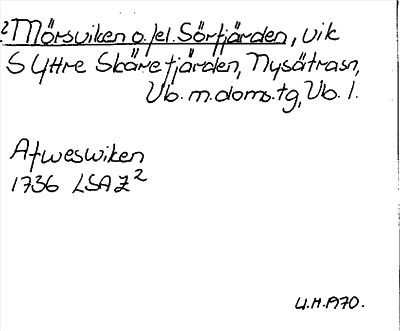 ²Mörsviken o./el. Sörfjärden, vik
S Yttre Skärefjärden, Nysätra sn,
Vb. m. doms. tg, Vb. l.
Afweswiken
1736 LSA Z²
U.H. 1970.